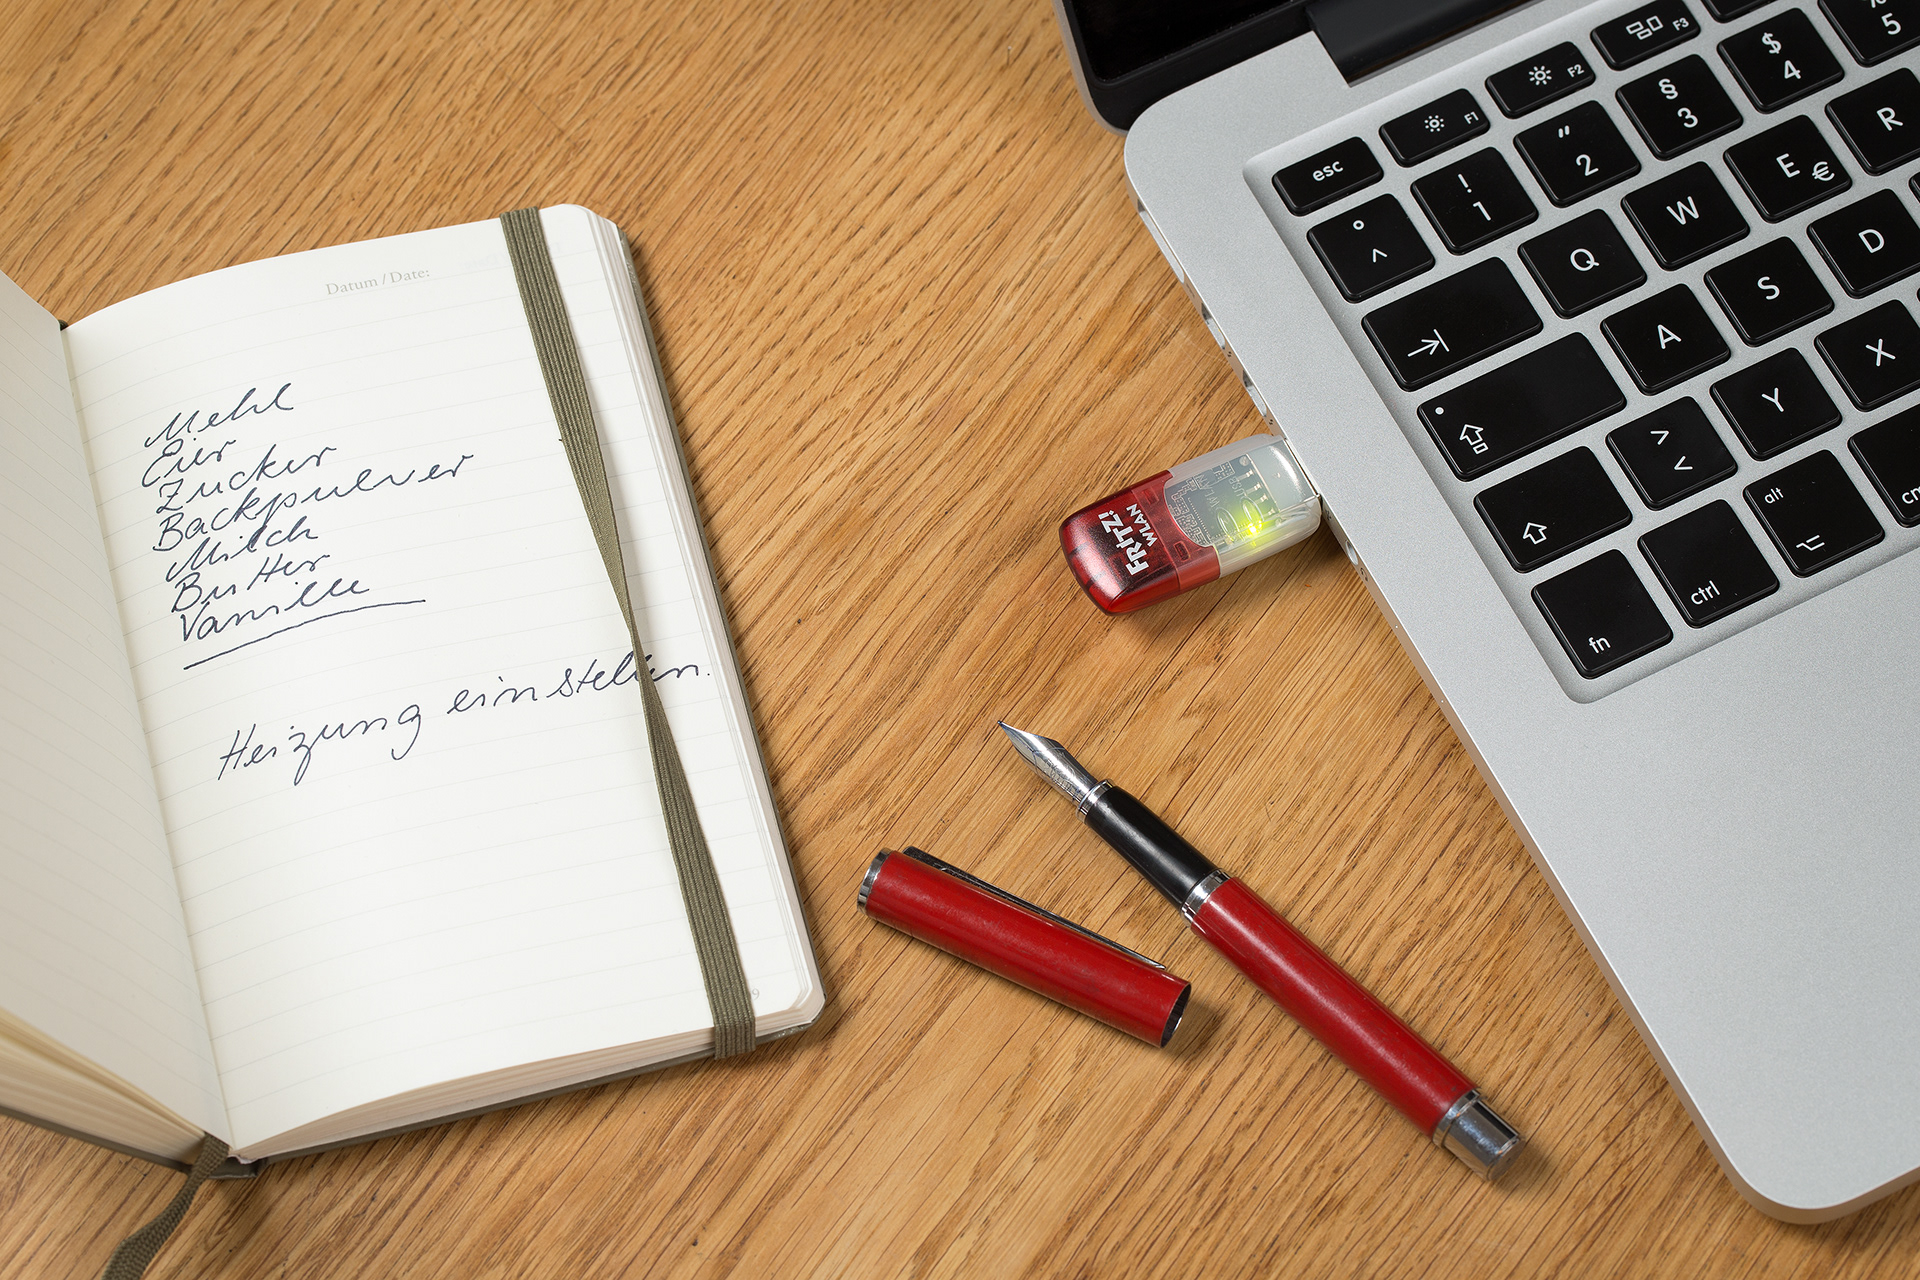 Datum / Date:
Mehl
Eier
Zucker
Backpulver
Milch
Butter
Vanille
Heizung einstellen.
9
FRITZ!
WLAN
esc
F1
F2
F3
° ^
! 1
" 2
§ 3
$ 4
% 5
Q
W
E €
R
A
S
D
> <
Y
X
fn
ctrl
alt